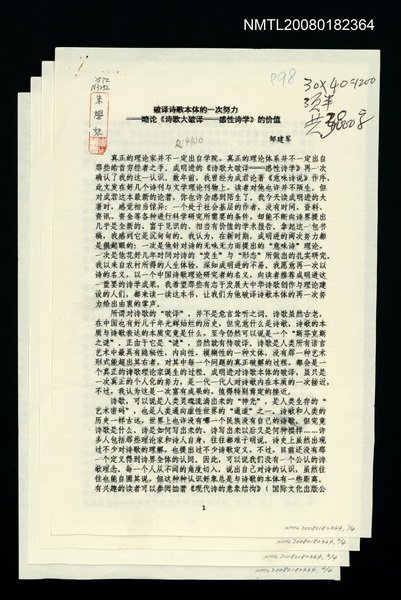 NMTL20080182364
P98
30×40=1200
共3800字
破译诗歌本体的一次努力
——略论《诗歌大破译——感性诗学》的价值
邹建军
真正的理论家并不一定出自学院，真正的理论体系并不一定出自
那些皓首穷经者之手，成明进的《诗歌大破译——感性诗学》再一次
确认了我的这一认识。数年前，我曾经为成君论著《意味诗说》作序，
此文发在好几个诗刊与文学理论刊物上，读者对他也许并不陌生。但
对成君这本最新的论著，你也许会感到陌生了。我今天读成明进的大
著时，感觉相当惊异：一个处于社会基层的作者，没有时间、资料、
资讯、资金等各种进行科学研究所需要的条件，却能不断向诗界提出
几乎是全新的、富于见识的、相当有价值的学术报告，拿起这一包书
稿，我感到它是沉甸甸的。我认为，在新时期，成明进的两次努力都
是很起眼的：一次是他针对诗的无味无力而提出的“意味诗”理论，
一次是他花好几年时间对诗的“发生”与“形态”所做出的扎实研究。
我以来自农村所得的人生体验，深知成明进的不易，我愿意再一次以
诗的名义，以一个中国诗歌理论研究者的名义，向读者推荐成明进这
一重要的诗学成果，我希望那些有志于发展大中华诗歌创作与理论建
设的人们，都来读一读这本书，让我们为他破译诗歌本体的再一次努
力给出由衷的掌声。
所谓对诗歌的“破译”，并不是危言耸听之词，诗歌虽然古老，
在中国也有好几千年光辉灿烂的历史，但究竟什么是诗歌，诗歌的本
质与诗歌表达的本质究竟是什么，至今仍然可以说是一个“斯芬克斯
之谜”，正由于它是“谜”，当然就有待破译。诗歌是人类所有语言
艺术中最具有隐秘性、内向性、模糊性的一种文体，没有那一种艺术
形式能超出其右者，对其中每一个问题的真正破解的过程，都会是一
个真正的诗歌理论家诞生的过程。成明进对诗歌本体的破译，虽只是
一次真正的个人化的努力，是一代一代人对诗歌内在本质的一次接近，
不过，我认为这是一次富有成果的、值得特别肯定的接近。
诗歌，可以说是人类灵魂流淌出来的“神光”，是人类生存的“
艺术密码”，也是人类通向虚性世界的“通道”之一。诗歌和人类的
历史一样古远。世界上也许没有哪一个民族没有自己的诗歌，但究竟
诗歌是什么、诗是如何写出来的、诗写出来以后又是何种模样……许
多人包括那些理论家和诗人自身，往往都难于明说，诗史上虽然出现
过不少对诗歌的理解，也提出过不少诗歌定义，不过，目前还没有那
一个定义得到诗界全体的认同。因此，可以说我们没有一个公认的诗
歌理念，每一个人从不同的角度切入，说出自己对诗的认识，虽然往
往也能自圆其说，但这种种认识好象总是与诗歌的本体有一些距离，
有兴趣的读者可以参阅拙著《现代诗的意象结构》（国际文化出版公
1
NMTL20080182364, 1/4
NMTL20080182364, 2/4
NMTL20080182364, 3/4
NMTL20080182364, 4/4